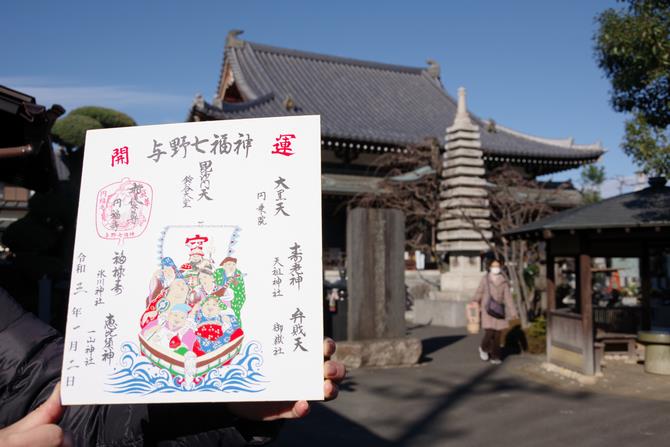 開 与野七福神 運
大黒天
円乗院
毘沙門天
鈴谷大堂
円福寺
与野七福神
寿老神
天祖神社
福禄寿
氷川神社
弁財天
御嶽社
恵比寿神
一山神社
令和三年一月二日
宝